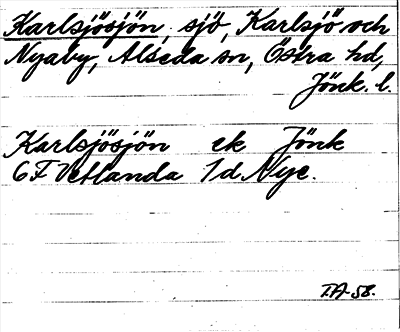 Karlsjösjön, sjö, Karlsjö och
Nyaby, Alseda sn, Östra hd,
Jönk. l.
Karlsjösjön ek Jönk
6F Vetlanda 1d Nye.
T.A. 58.